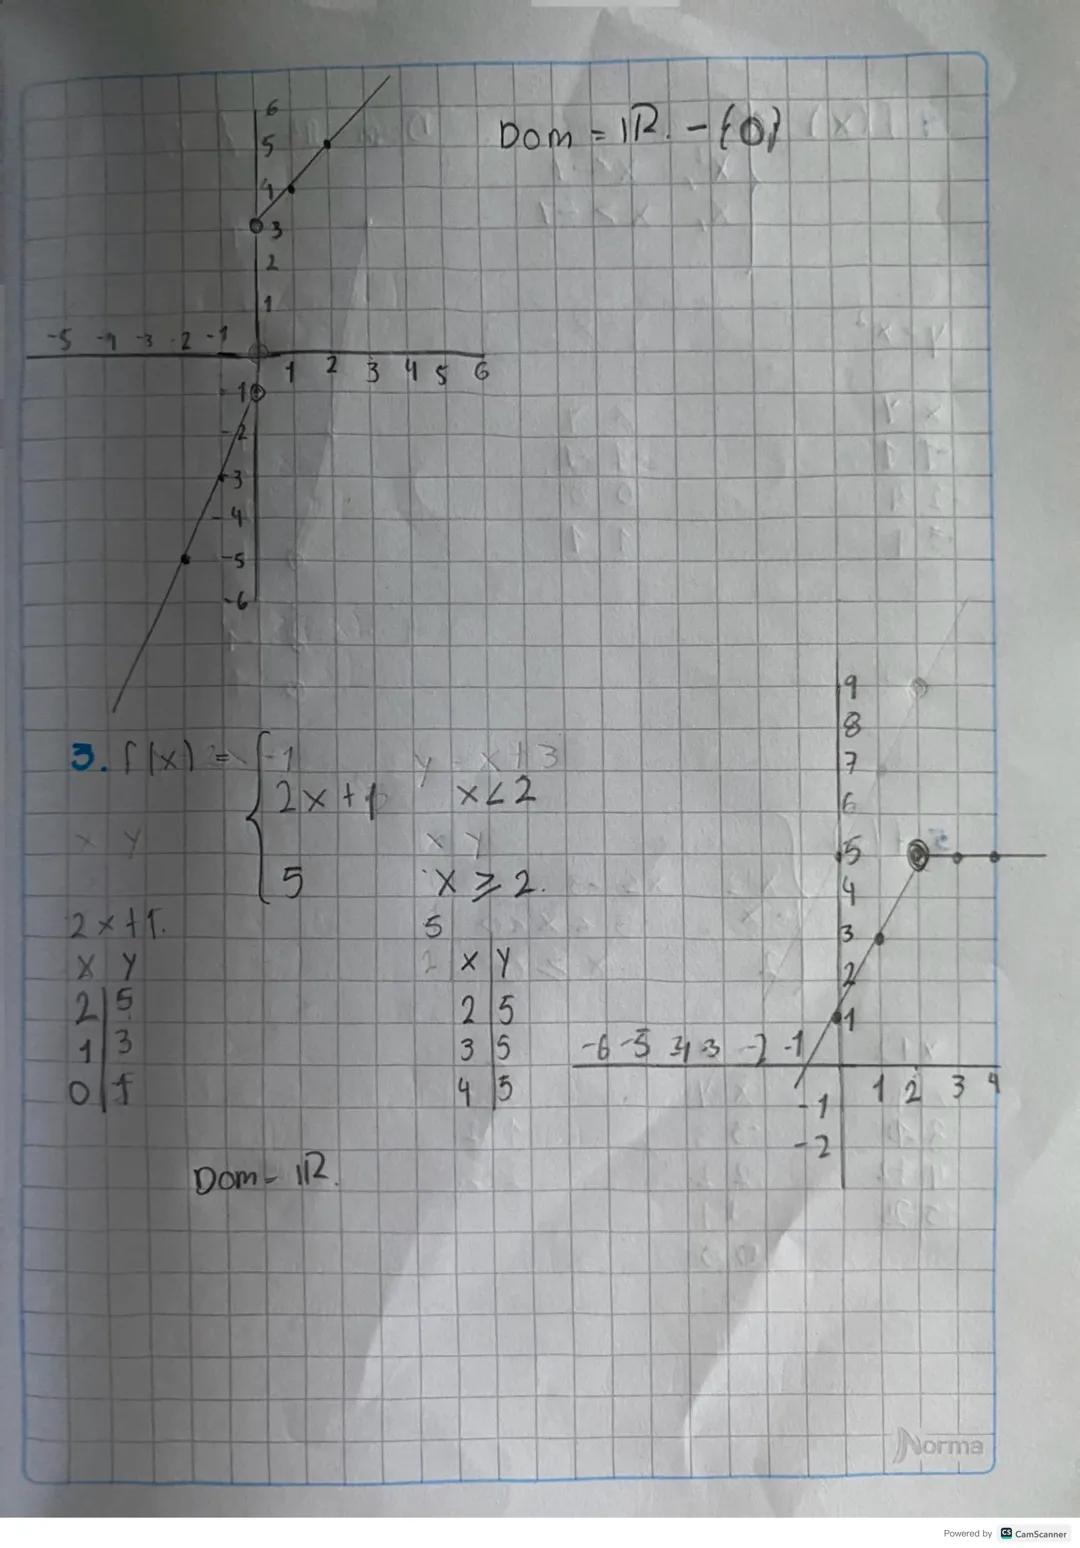 6
5
4
3
2
1
Dom = IR. - {0}
-5 -4 -3 -2 -1
1 2 3 4 5 6
-1
-2
-3
-4
-5
-6
3. f(x) = { 2x+1 x<2
5 x ≥ 2.
2x+1.
x y
2 5
1 3
0 1
5
x y
2 5
3 5
4 5
9
8
7
6
5
4
3
2
1
-6 -5 -4 -3 -2 -1
1 2 3 4
-1
-2
Dom = IR.
Norma
Powered by CS CamScanner